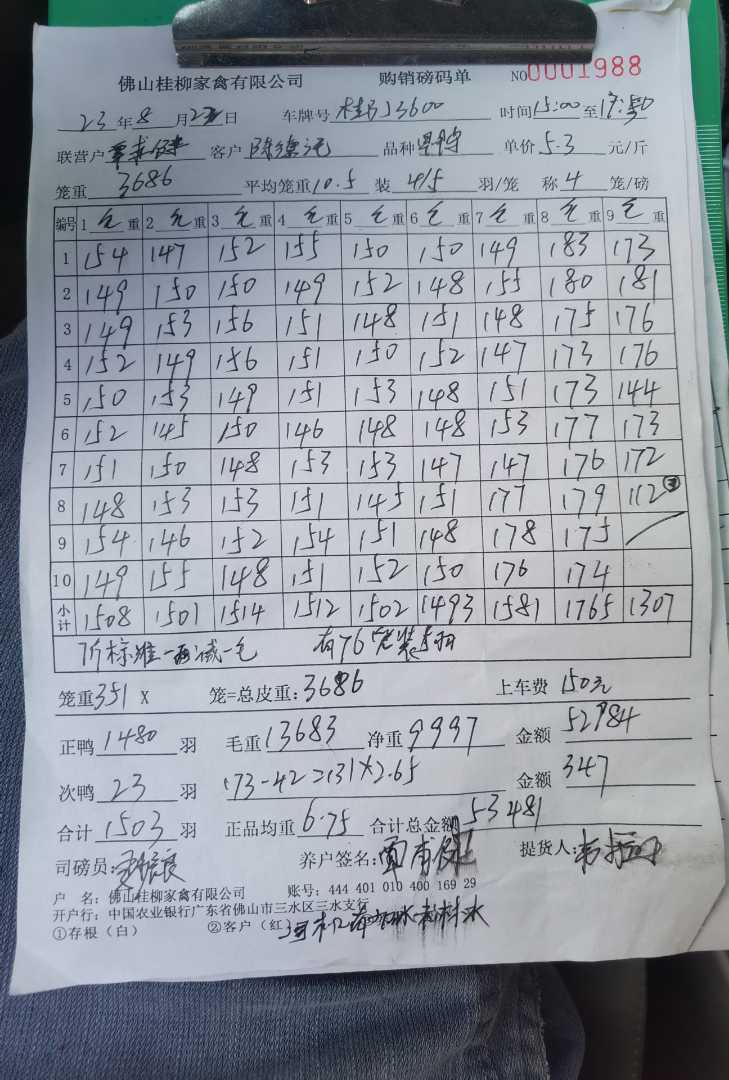 佛山桂柳家禽有限公司 购销磅码单 NO 0001988
23年8月22日 车牌号 桂 J3600 时间15:00至17:50
联营户 客户 品种 单价5.3元/斤
笼重3686 平均笼重10.5 装4/5羽/笼 称4笼/磅
编号 1 毛重 2 毛重 3 毛重 4 毛重 5 毛重 6 毛重 7 毛重 8 毛重 9 毛重
1 154 147 152 155 150 150 149 183 173
2 149 150 150 149 152 148 155 180 181
3 149 153 156 151 148 151 148 175 176
4 152 149 156 151 150 152 147 173 176
5 150 153 149 151 153 148 151 173 144
6 152 145 150 146 148 148 153 177 173
7 151 150 148 153 153 147 147 176 172
8 148 153 153 151 145 151 177 179 112③
9 154 146 152 154 151 148 178 175
10 149 155 148 151 152 150 176 174
小计 1508 1501 1514 1512 1502 1493 1581 1765 1307
标准一 减一毛 有76笼装5羽
笼重351 X 笼=总皮重:3686 上车费 150元
正鸭1480羽 毛重13683 净重9997 金额52984
次鸭23羽 173-42=131×2.65 金额347
合计1503羽 正品均重6.75 合计总金额53481
司磅员: 养户签名: 提货人:
户 名:佛山桂柳家禽有限公司 账号:444 401 010 400 169 29
开户行:中国农业银行广东省佛山市三水区三水支行
①存根(白) ②客户(红)